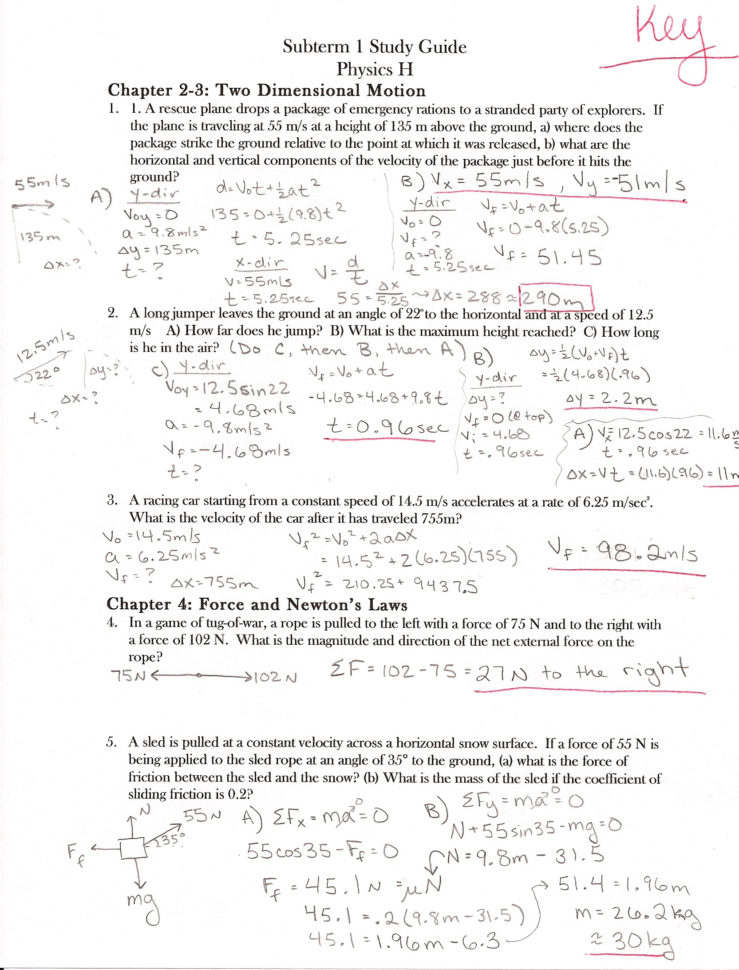 Key
Subterm 1 Study Guide
Physics H
Chapter 2-3: Two Dimensional Motion
1. 1. A rescue plane drops a package of emergency rations to a stranded party of explorers. If
the plane is traveling at 55 m/s at a height of 135 m above the ground, a) where does the
package strike the ground relative to the point at which it was released, b) what are the
horizontal and vertical components of the velocity of the package just before it hits the
ground?
55m/s
135m
Δx=?
A) y-dir
Voy=0
a=9.8m/s²
Δy=135m
t=?
d=Vot+½at²
135=0+½(9.8)t²
t=5.25sec
x-dir
V=55m/s
t=5.25sec
V=d/t
55=Δx/5.25 → Δx=288≈290m
B) Vx=55m/s, Vy=-51m/s
y-dir
Vo=0
Vf=?
a=-9.8
t=5.25sec
Vf=Vo+at
Vf=0-9.8(5.25)
Vf=51.45
2. A long jumper leaves the ground at an angle of 22° to the horizontal and at a speed of 12.5
m/s A) How far does he jump? B) What is the maximum height reached? C) How long
is he in the air? (Do C, then B, then A)
12.5m/s
22°
Δy=?
Δx=?
t=?
C) y-dir
Voy=12.5sin22
=4.68m/s
a=-9.8m/s²
Vf=-4.68m/s
t=?
Vf=Vo+at
-4.68=4.68+9.8t
t=0.96sec
B)
y-dir
Δy=?
Vf=0(@top)
Vi=4.68
t=.96sec
Δy=½(Vo+Vf)t
=½(4.68)(.96)
Δy=2.2m
A) Vx=12.5cos22=11.6m/s
t=.96sec
Δx=Vt=(11.6)(.96)=11m
3. A racing car starting from a constant speed of 14.5 m/s accelerates at a rate of 6.25 m/sec².
What is the velocity of the car after it has traveled 755m?
Vo=14.5m/s
a=6.25m/s²
Vf=? Δx=755m
Vf²=Vo²+2aΔx
=14.5²+2(6.25)(755)
Vf²=210.25+9437.5
Vf=98.2m/s
Chapter 4: Force and Newton's Laws
4. In a game of tug-of-war, a rope is pulled to the left with a force of 75 N and to the right with
a force of 102 N. What is the magnitude and direction of the net external force on the
rope?
75N 102N
ΣF=102-75=27N to the right
5. A sled is pulled at a constant velocity across a horizontal snow surface. If a force of 55 N is
being applied to the sled rope at an angle of 35° to the ground, (a) what is the force of
friction between the sled and the snow? (b) What is the mass of the sled if the coefficient of
sliding friction is 0.2?
N
55N
35°
Ff
mg
A) ΣFx=ma=0
55cos35-Ff=0
Ff=45.1N=μN
45.1=.2(9.8m-31.5)
45.1=1.96m-6.3
B) ΣFy=ma=0
N+55sin35-mg=0
N=9.8m-31.5
51.4=1.96m
m=26.2kg
≈30kg